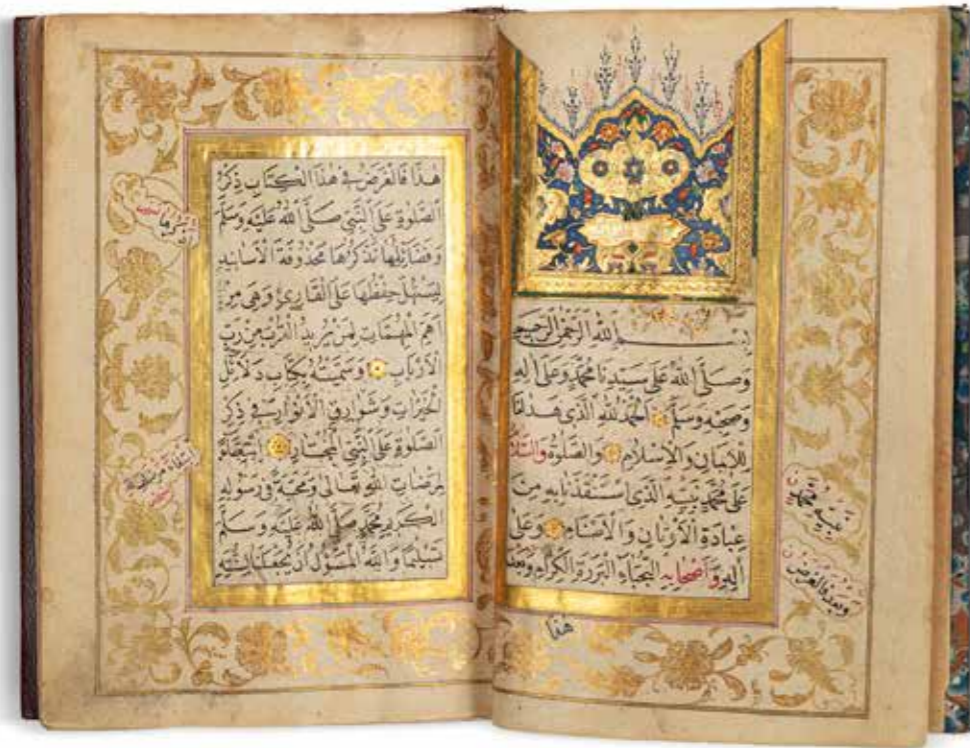 بِسْمِ اللهِ الرَّحْمٰنِ الرَّحِيمِ
وَصَلَّى اللهُ عَلَى سَيِّدِنَا مُحَمَّدٍ وَعَلَى اٰلِهِ
وَصَحْبِهِ وَسَلَّمَ اَلْحَمْدُ لِلّٰهِ الَّذِى هَدٰينَا
لِلْاِيمَانِ وَالْاِسْلَامِ وَالصَّلٰوةُ وَالسَّلَامُ
عَلَى مُحَمَّدٍ نَبِيِّهِ الَّذِى اسْتَنْقَذَنَا بِهِ مِنْ
عِبَادَةِ الْاَوْثَانِ وَالْاَصْنَامِ وَعَلَى
اٰلِهِ وَاَصْحَابِهِ النُّجَبَاءِ الْبَرَرَةِ الْكِرَامِ وَبَعْدَ
هذا
نبيه محمد
وبعد فالغرض
هٰذَا فَالْغَرَضُ فِى هٰذَا الْكِتَابِ ذِكْرُ
الصَّلٰوةِ عَلَى النَّبِىِّ صَلَّى اللهُ عَلَيْهِ وَسَلَّمَ
وَفَضَائِلُهَا نَذْكُرُهَا مَحْذُوفَةَ الْاَسَانِيدِ
لِيَسْهُلَ حِفْظُهَا عَلَى الْقَارِئِ وَهِىَ مِنْ
اَهَمِّ الْمُهِمَّاتِ لِمَنْ يُرِيدُ الْقُرْبَ مِنْ رَبِّ
الْاَرْبَابِ وَسَمَّيْتُهُ بِكِتَابِ دَلَائِلِ
الْخَيْرَاتِ وَشَوَارِقِ الْاَنْوَارِ فِى ذِكْرِ
الصَّلٰوةِ عَلَى النَّبِىِّ الْمُخْتَارِ اِبْتِغَاءً
لِمَرْضَاتِ اللهِ تَعَالَى وَمَحَبَّةً فِى رَسُولِهِ
الْكَرِيمِ مُحَمَّدٍ صَلَّى اللهُ عَلَيْهِ وَسَلَّمَ
تَسْلِيمًا وَاللهُ الْمَسْؤُلُ اَنْ يَجْعَلَنَا لِسُنَّتِهِ